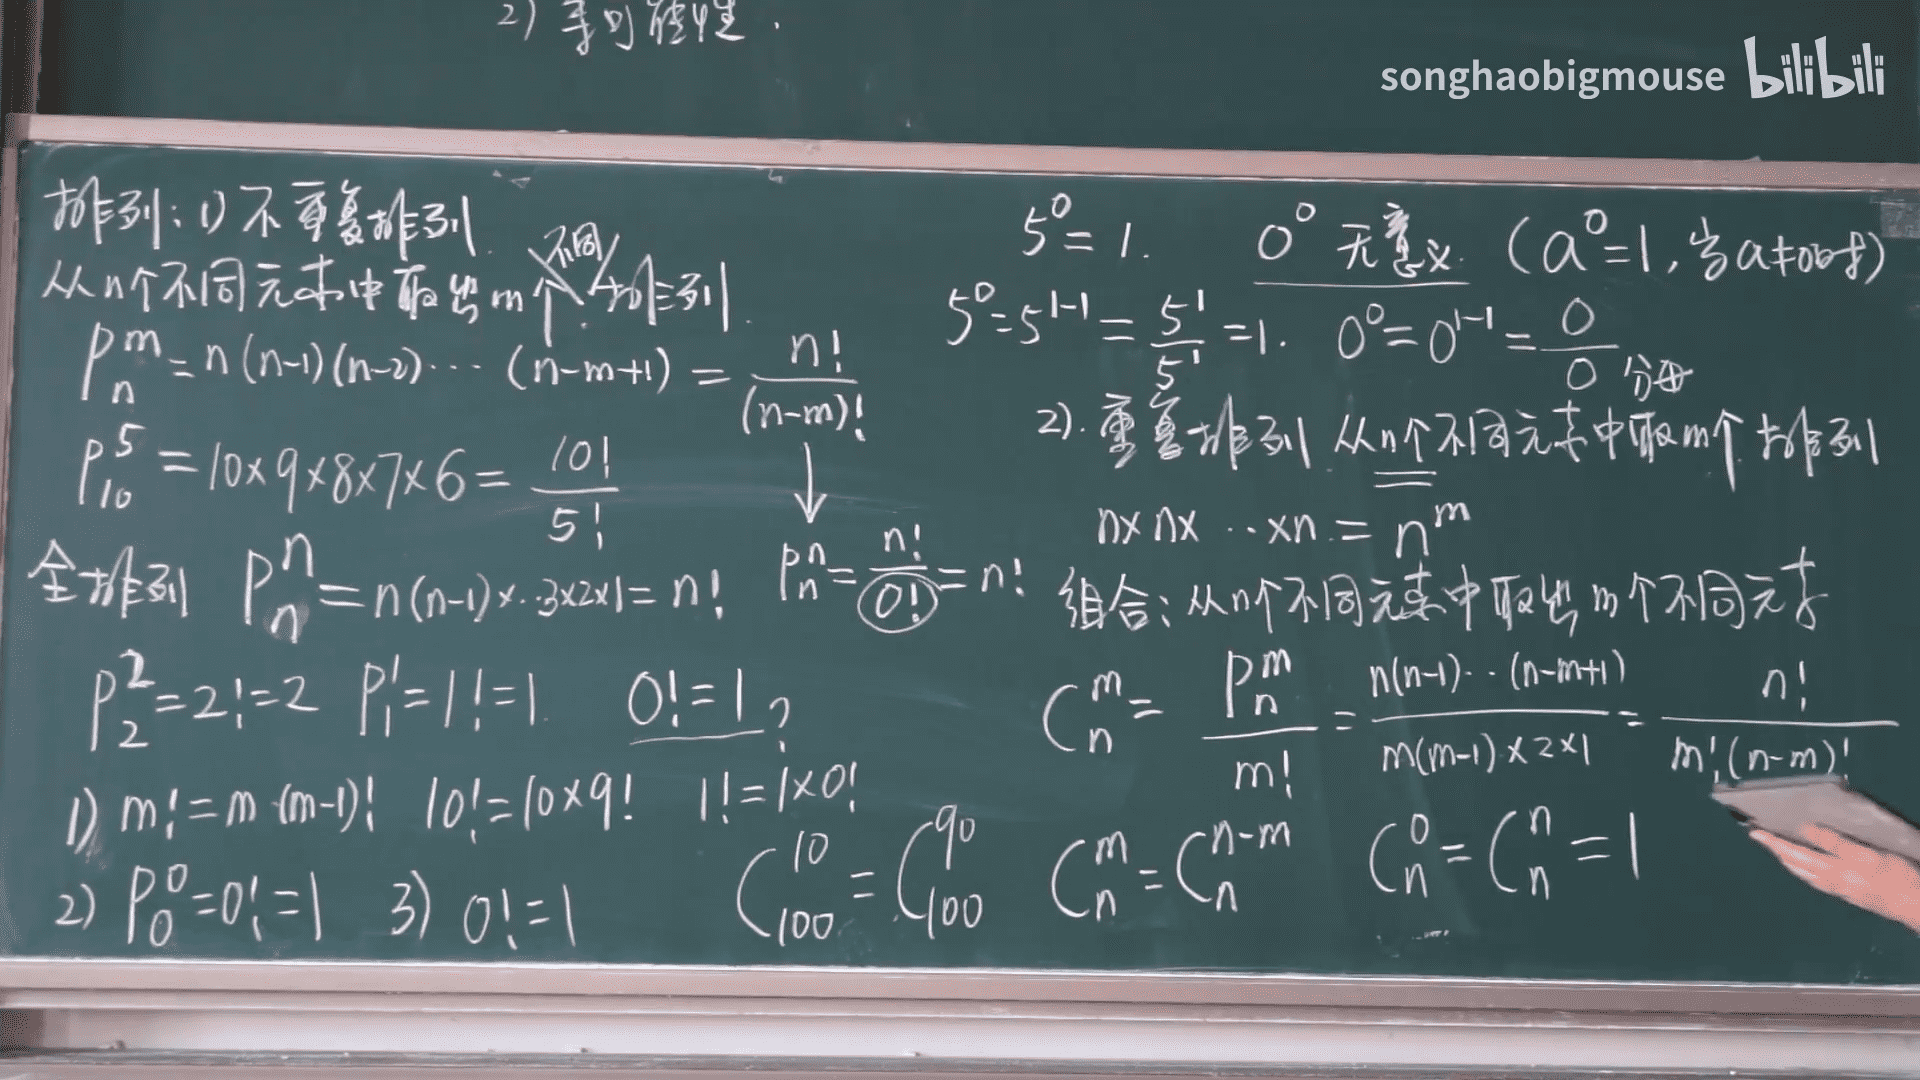 2) 等可能性.
songhaobigmouse bilibili
排列: 1) 不重复排列
从n个不同元素中取出m个不同排列.
P_n^m = n(n-1)(n-2)⋯(n-m+1) = n!/(n-m)!
P_10^5 = 10×9×8×7×6 = 10!/5!
全排列 P_n^n = n(n-1)×⋯3×2×1 = n!
P_n^n = n!/0! = n!
P_2^2 = 2! = 2 P_1^1 = 1! = 1. 0! = 1?
1) m! = m·(m-1)! 10! = 10×9! 1! = 1×0!
2) P_0^0 = 0! = 1 3) 0! = 1
5^0 = 1. 0^0 无意义. (a^0 = 1, 当a≠0时)
5^0 = 5^{1-1} = 5^1/5^1 = 1. 0^0 = 0^{1-1} = 0/0 分母
2). 重复排列. 从n个不同元素中取m个排列
n×n×⋯×n = n^m
组合: 从n个不同元素中取出m个不同元素
C_n^m = P_n^m/m! = n(n-1)⋯(n-m+1)/m(m-1)⋅×2×1 = n!/m!(n-m)!
C_100^10 = C_100^90 C_n^m = C_n^{n-m} C_n^0 = C_n^n = 1